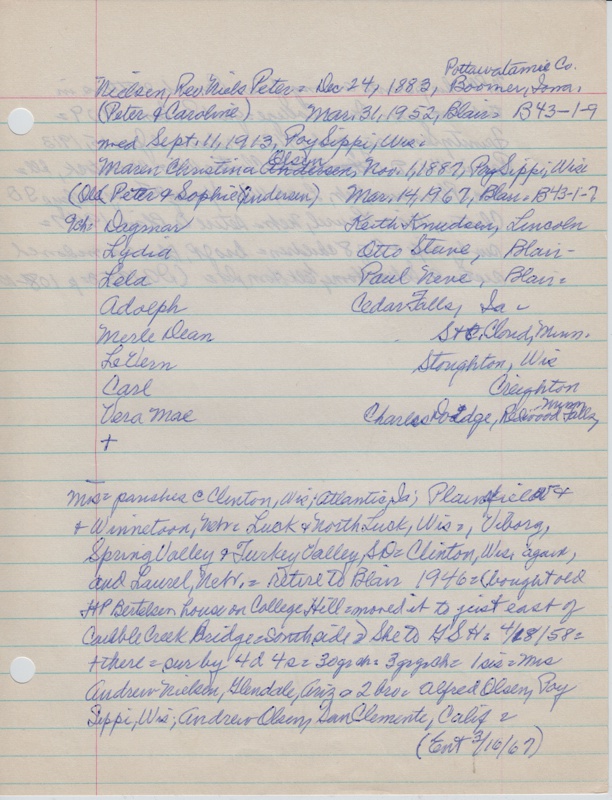 Pottawatamie Co.
Nielsen, Rev. Niels Peter = Dec 24, 1883, Boomer, Iowa.
(Peter & Caroline) Mar. 31, 1952, Blair = B43-1-9
med Sept. 11, 1913, Poy Sippi, Wis =
Olsen
Maren Christina Andersen, Nov. 1, 1887, Poy Sippi, Wise
(Old Peter & Sophie Andersen) Mar. 14, 1967, Blair = B43-1-7
9ch: Dagmar Keith Knudsen, Lincoln
Lydia Otto Stave, Blair -
Lela Paul Neve, Blair =
Adolph Cedar Falls, Ia -
Merle Dean St. Cloud, Minn.
LaVern Stoughton, Wis
Carl Creighton
Vera Mae Charles Dodge, Redwood Falls, Minn
+
Mrs = parishes c Clinton, Wis; Atlantic, Ia; Plainfield
& Winnetoon, Nebr = Luck & North Luck, Wis =, Viborg,
Spring Valley & Turkey Valley, SD = Clinton, Wis. again,
and Laurel, Nebr. = retire to Blair 1946 = (bought old
HP Bertelsen house on College Hill = moved it to just east of
Cauble Creek Bridge = south side) She to GSH = 4/28/58 =
+ there = sur by 4d 4s = 30grch = 3grgrch = 1sis = Mrs
Andrew Nielsen, Glendale, Ariz = 2 bro = Alfred Olsen, Poy
Sippi, Wis; Andrew Olsen, San Clemente, Calif =
(Ent 3/16/67)